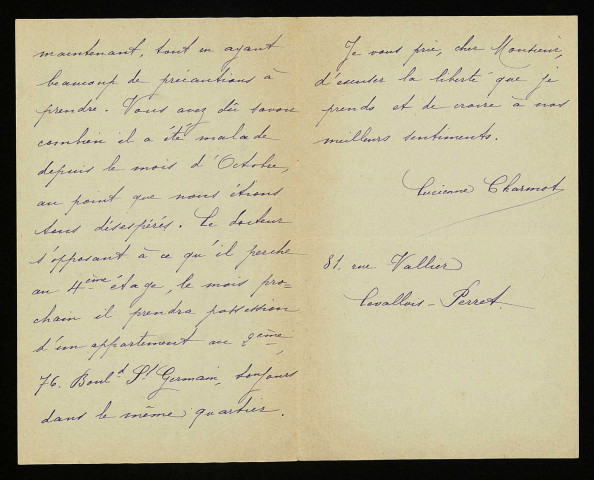 maintenant, tout en ayant
beaucoup de précautions à
prendre. Vous avez dû savoir
combien il a été malade
depuis le mois d'Octobre,
au point que nous étions
tous désespérés. Le docteur
s'opposant à ce qu'il perche
au 4ème étage, le mois pro=
chain il prendra possession
d'un appartement au 2ème,
76. Boul.d St Germain, toujours
dans le même quartier.
Je vous prie, cher Monsieur,
d'excuser la liberté que je
prends et de croire à nos
meilleurs sentiments.
Lucienne Charmot
81. rue Vallier
Levallois-Perret.